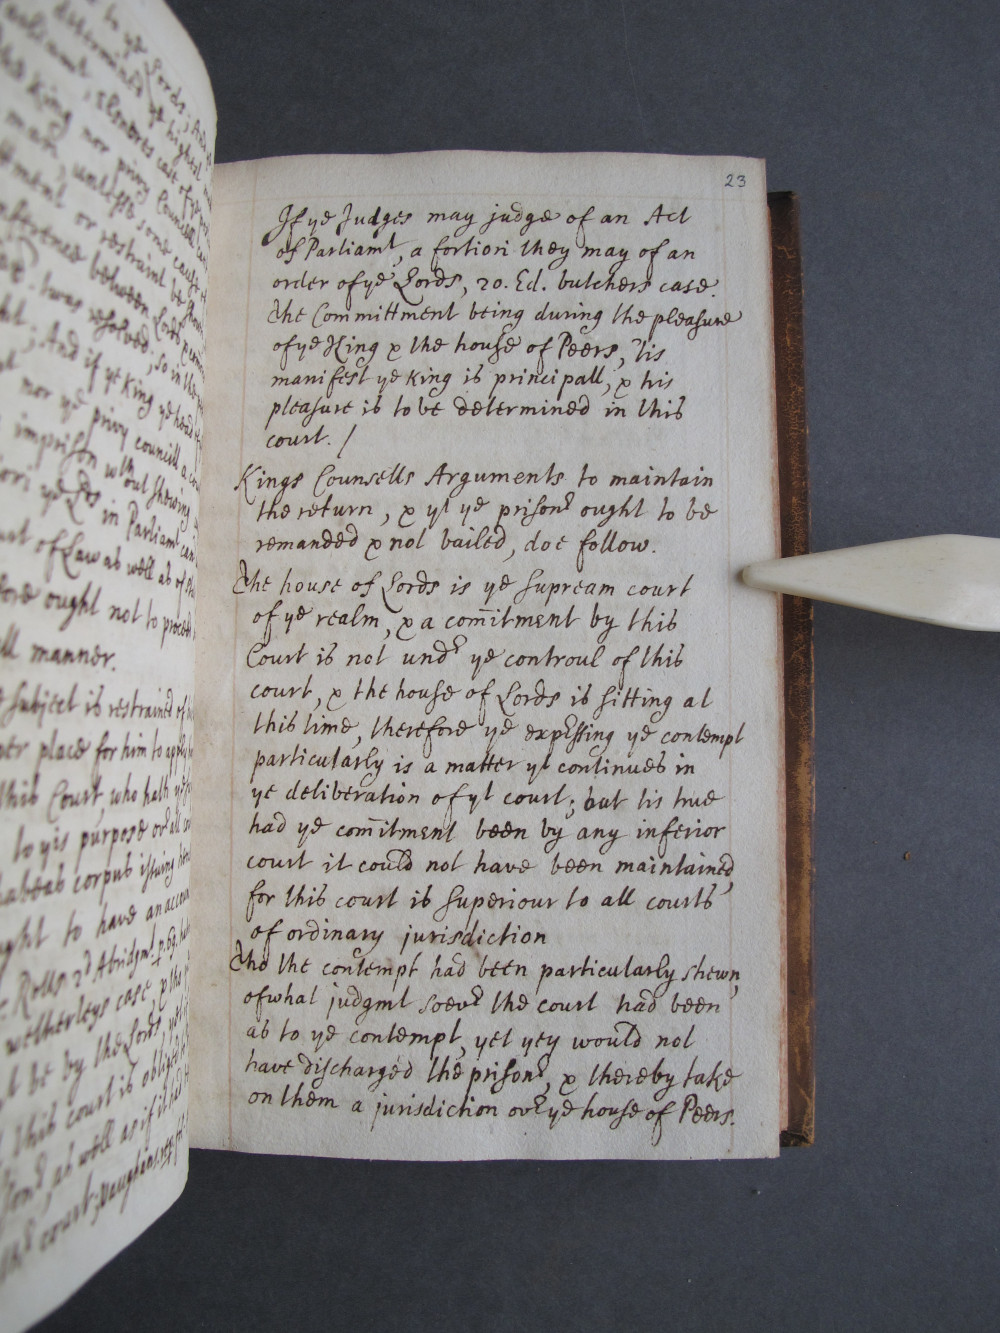 to ye Lords; And
determined ye highest
Parliamt, Elsmores case of ye
King nor privy Councill can
man, unlesse some cause
ttment or restraint be shewn
nference between Lords
'twas resolved; so in the
And if ye King ye head
nor ye privy councill
imprison wthout shewing
ye Lds in Parliamt can
of Law as well as of
ought not to proceed
manner.
Subject is restrained of
per place for him to apply
this Court, who hath ye
to yis purpose ovr all
habeas corpus issuing
ought to have an accou
Rolls 2d Abridgmt. p. 69.
wetherleys case, & this
be by the Lords
this court is obliged
as well as if it had
court; Vaughans rep: fol
23
If ye Judges may judge of an Act
of Parliamt, a fortiori they may of an
order of ye Lords, 20. Ed. butchers case.
The Committment being during the pleasure
of ye King & the house of Peers, 'tis
manifest ye King is principall, & his
pleasure is to be determined in this
court. /
Kings Counsells Arguments to maintain
the return, & yt ye prisonr ought to be
remanded & not bailed, doe follow.
The house of Lords is ye supream court
of ye realm, & a com̄itment by this
Court is not undr ye controul of this
court, & the house of Lords is sitting at
this time, therefore ye expressing ye contempt
particularly is a matter yt continues in
ye deliberation of yt court; but tis true
had ye com̄itment been by any inferior
court it could not have been maintained,
for this court is superiour to all courts
of ordinary jurisdiction
Tho the contempt had been particularly shewn,
of what judgmt soevr the court had been
as to ye contempt, yet yey would not
have discharged the prisonr, & thereby take
on them a jurisdiction ovr ye house of Peers.